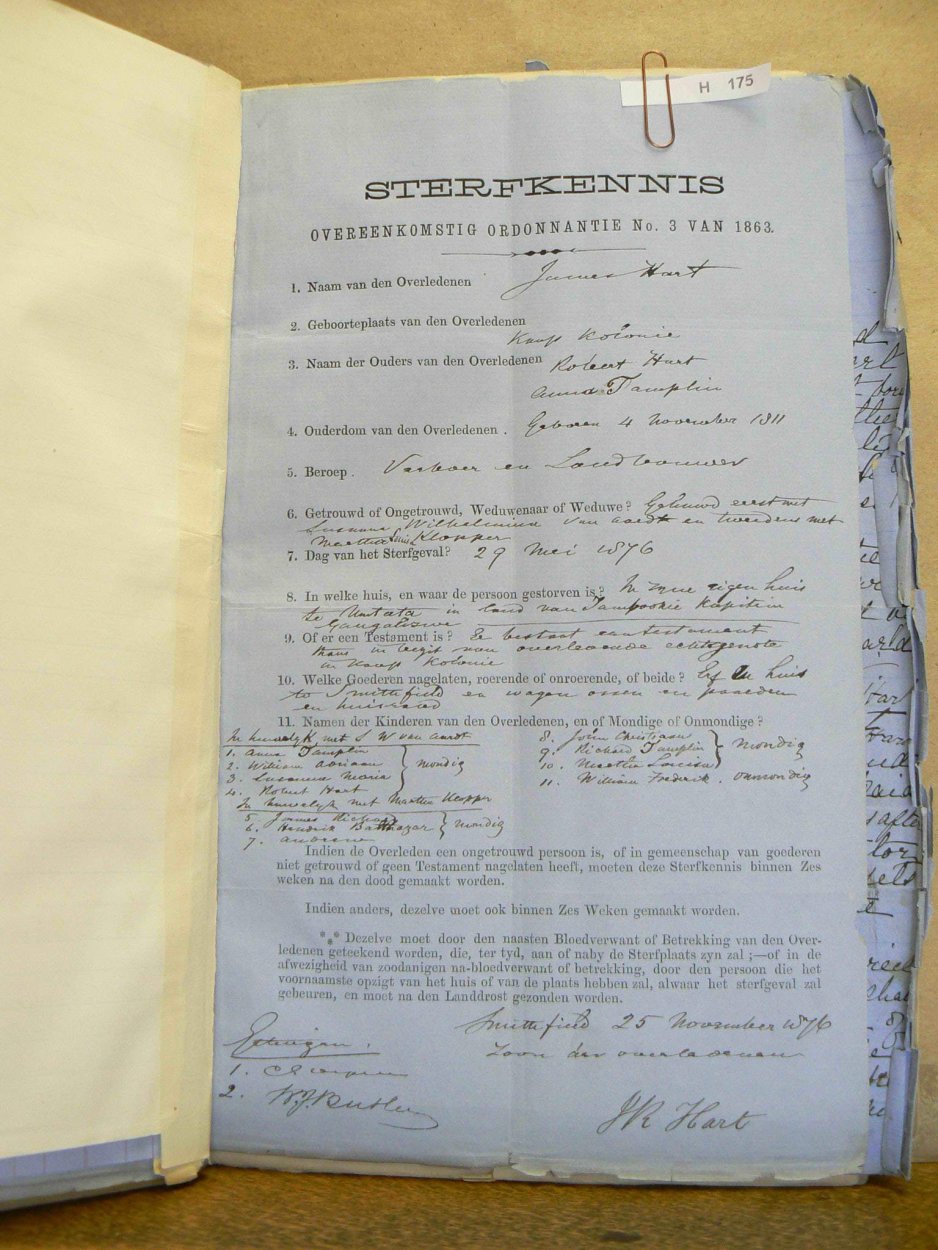 H 175
STERFKENNIS
OVEREENKOMSTIG ORDONNANTIE No. 3 VAN 1863.
1. Naam van den Overledenen James Hart
2. Geboorteplaats van den Overledenen
Kaap Kolonie
3. Naam der Ouders van den Overledenen Robert Hart
Anna Tamplin
4. Ouderdom van den Overledenen . Geboren 4 November 1811
5. Beroep . Veeboer en Landbouwer
6. Getrouwd of Ongetrouwd, Weduwenaar of Weduwe? Gehuwd eerst met
Susanna Wilhelmina van Aardt en tweedens met
Martha Louisa Klopper
7. Dag van het Sterfgeval? 29 Mei 1876
8. In welke huis, en waar de persoon gestorven is? In zyne eigen huis
te Umtata in land van Tambookie Kapitein
Gangalizwe
9. Of er een Testament is? Er bestaat een testament
thans in bezit van overleedende echtgenote
in Kaap Kolonie
10. Welke Goederen nagelaten, roerende of onroerende, of beide? Erf en huis
to Smithfield en wagen ossen en paarden
en huisraad
11. Namen der Kinderen van den Overledenen, en of Mondige of Onmondige?
In huwelyk met S W van Aardt
1. Anna Tamplin
2. William Adriaan
3. Susanna Maria
mondig
4. Robert Hart
In huwelyk met Martha Klopper
5. James Richard
6. Hendrik Balthazar
mondig
7. Andrew
8. John Christiaan
9. Richard Tamplin
10. Martha Louisa
mondig
11. William Frederik . onmondig
Indien de Overleden een ongetrouwd persoon is, of in gemeenschap van goederen
niet getrouwd of geen Testament nagelaten heeft, moeten deze Sterfkennis binnen Zes
weken na den dood gemaakt worden.
Indien anders, dezelve moet ook binnen Zes Weken gemaakt worden.
*** Dezelve moet door den naasten Bloedverwant of Betrekking van den Over-
ledenen geteekend worden, die, ter tyd, aan of naby de Sterfplaats zyn zal ;—of in de
afwezigheid van zoodanigen na-bloedverwant of betrekking, door den persoon die het
voornaamste opzigt van het huis of van de plaats hebben zal, alwaar het sterfgeval zal
gebeuren, en moet na den Landdrost gezonden worden.
Smithfield 25 November 1876
Zoon der overledenen
Getuigen.
1.
2. W.J. Butler
JR Hart